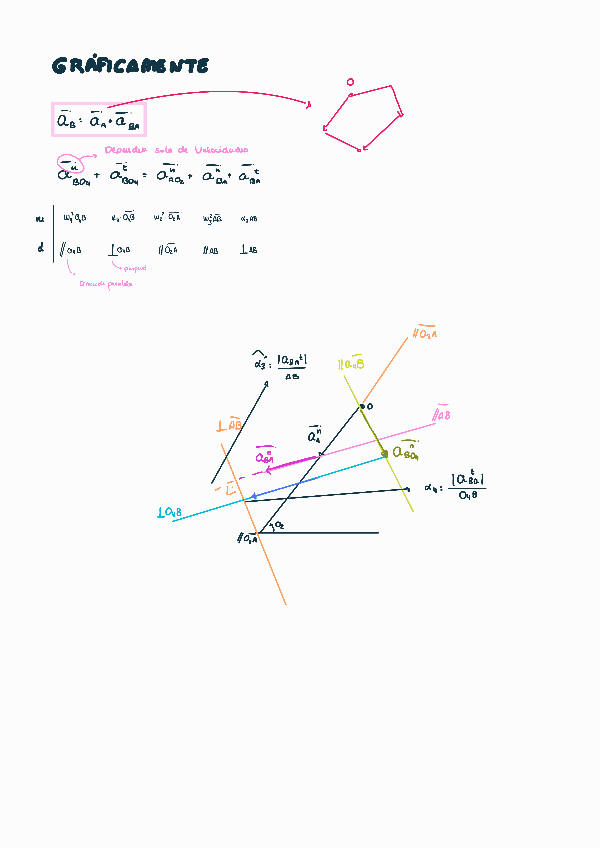 GRÁFICAMENTE
O
a̅B = a̅A + a̅BA
Dependen solo de Velocidades
a̅ⁿBO4 + a̅ᵗBO4 = a̅ⁿAO2 + a̅ⁿBA + a̅ᵗBA
m ω4²·O4B α4·O4B ω2²·O2A ω3²·AB α3·AB
d //O4B ⊥O4B //O2A //AB ⊥AB
Dirección paralela
//O2A
α3: |aBAᵗ| / AB
//O4B
O
//AB
⊥AB
a̅Aⁿ
a̅BAⁿ
a̅BO4ⁿ
α4: |aBO4ᵗ| / O4B
⊥O4B
//O2A